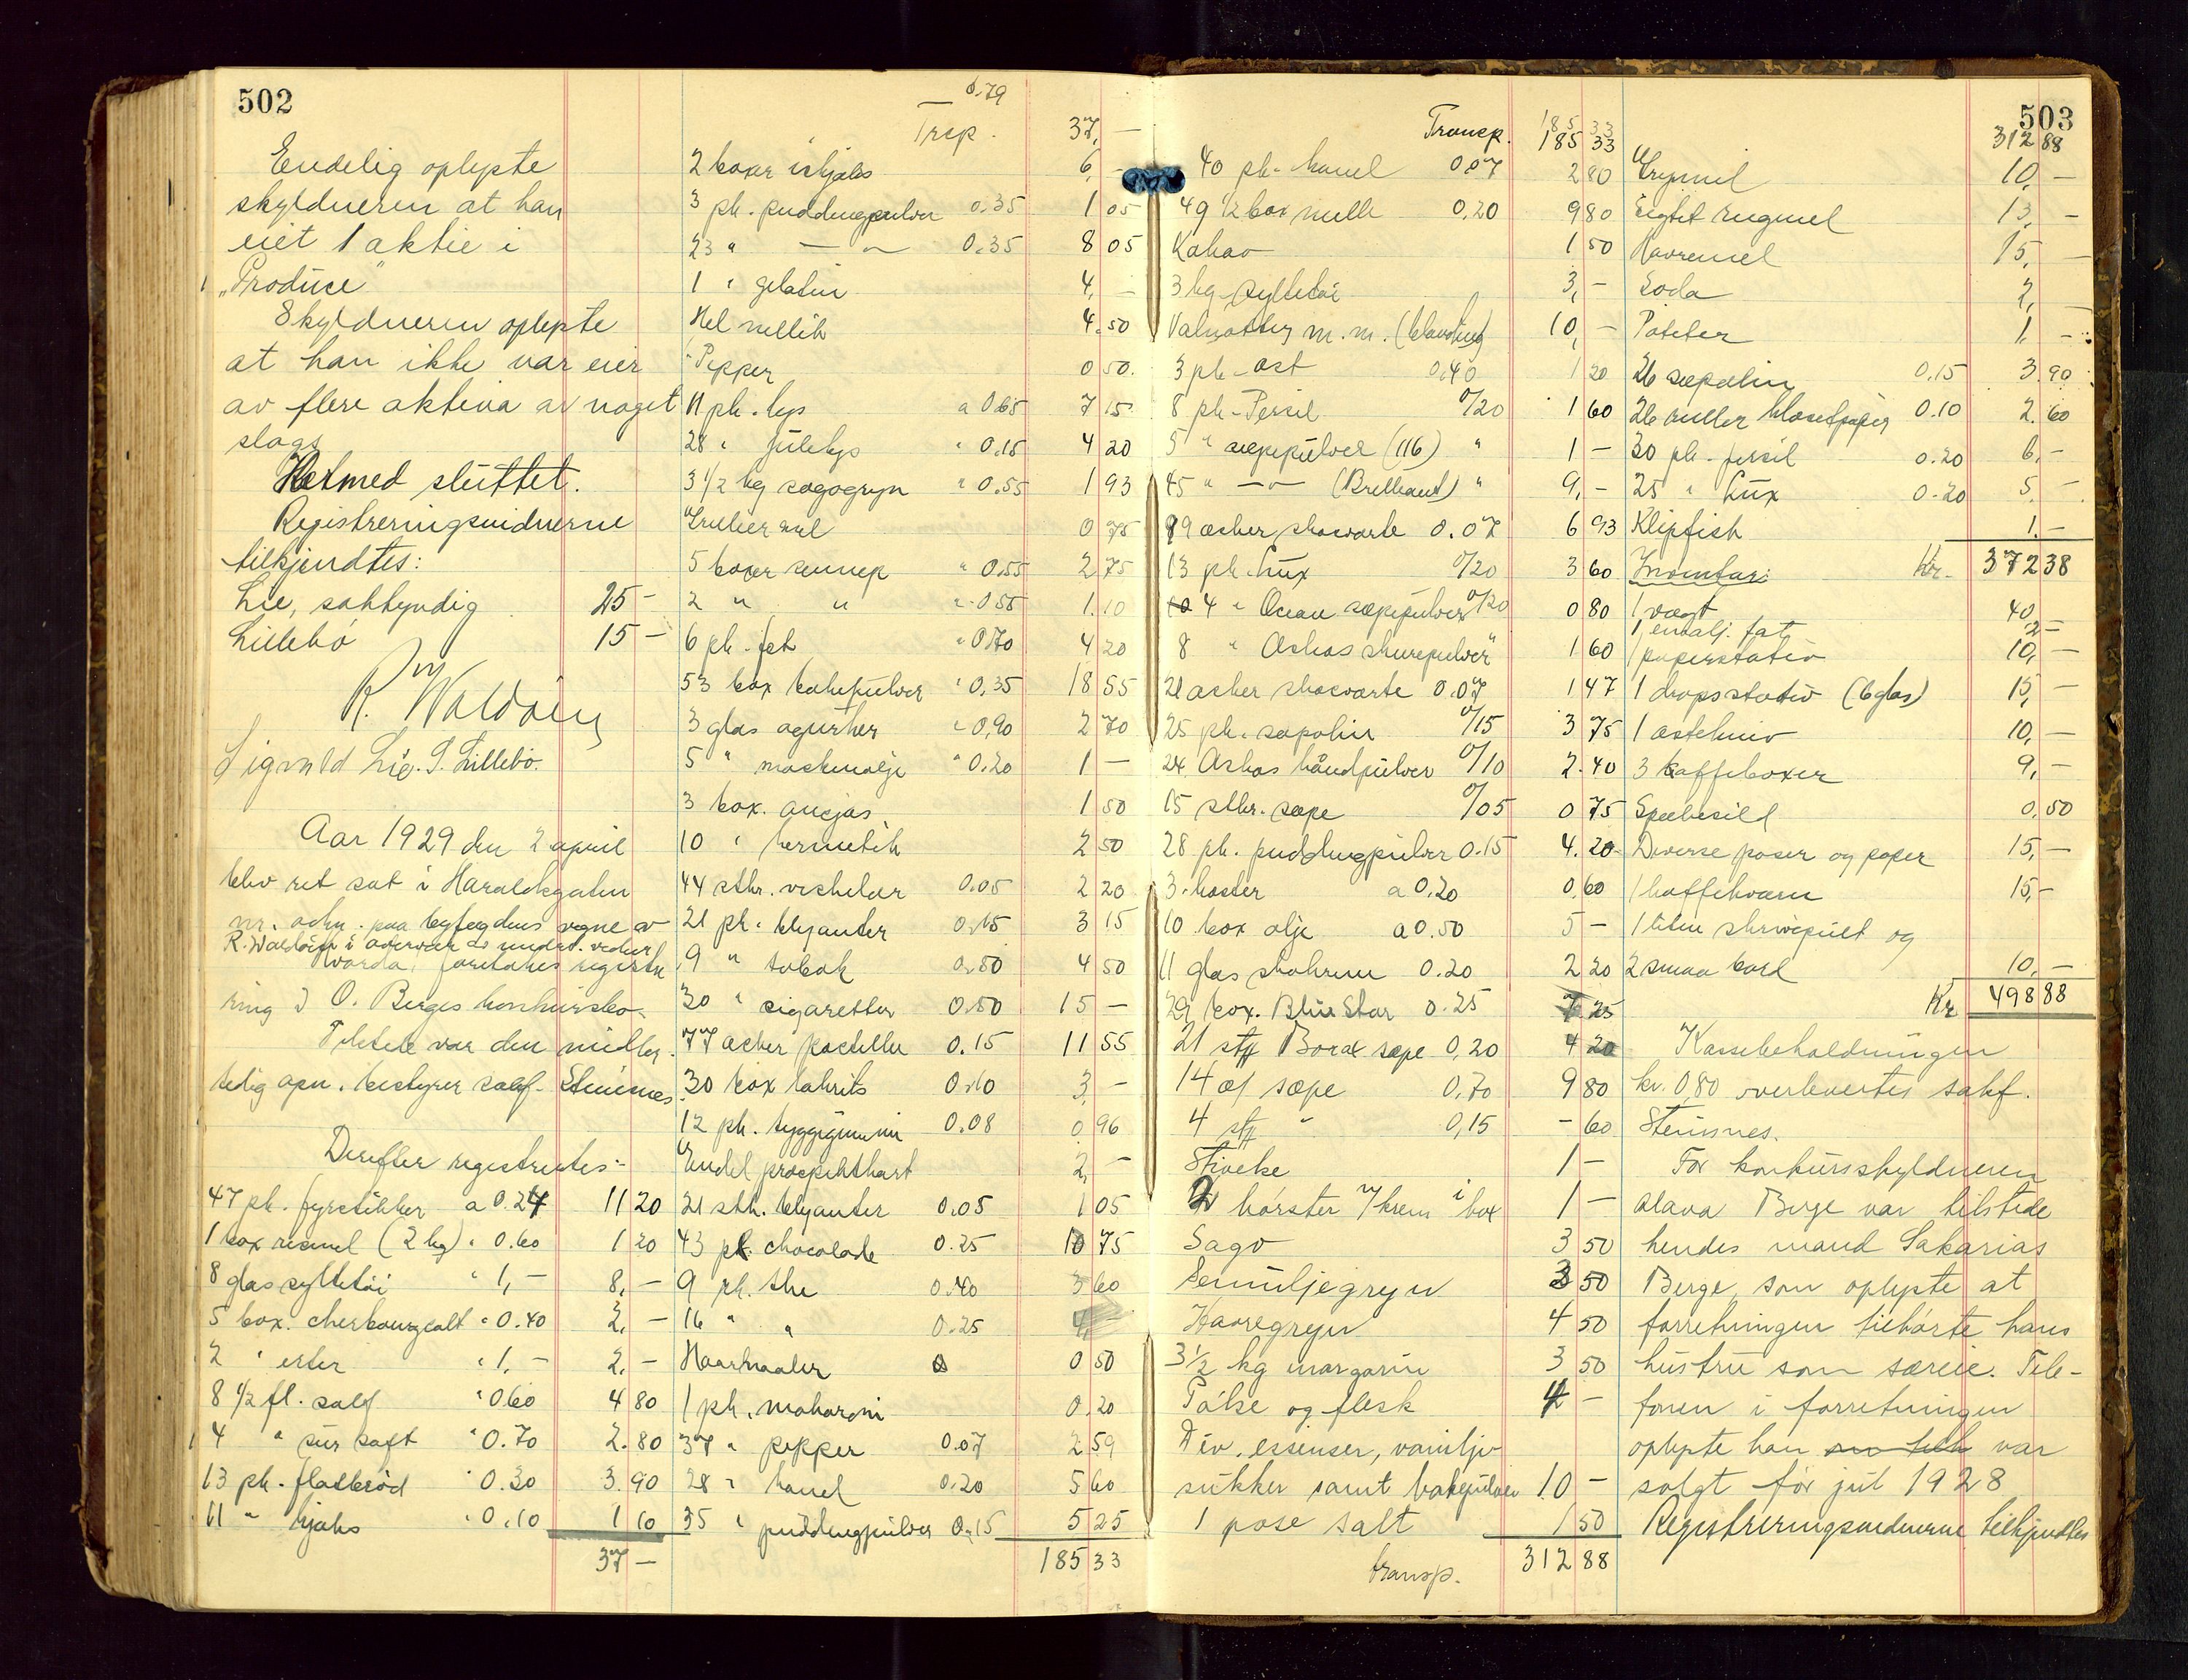 502
Endelig oplyste
skyldneren at han
eiet 1 aktie i
"Produce"
Skyldneren oplyste
at han ikke var eier
av flere aktiva av noget
slags
Hermed sluttet.
Registreringsvidnerne
tilkjendtes:
Lie, sakkyndig 25 -
Lillebø 15 -
R. Waldain
Sigvald Lie. S. Lillebø.
Aar 1929 den 2 april
blev ret sat i Haraldsgaten
nr. adm. paa byfogdens vegne av
R. Waldain i overvær av undert. vidner
foretokes registre
ring i O. Berges konkursbo.
Tilstede var den midler
tidig opn. bestyrer sakf. Steinsnes
Derefter registrertes:
47 pk. fyrstikker a 0.24 11 20
1 box rismel (2 kg) " 0.60 1 20
8 glas syltetøi " 1, - 8, -
5 box. cherbourgsalt " 0.40 2, -
2 " erter " 1, - 2, -
8 1/2 fl. saft " 0.60 4 80
4 " sur saft " 0.70 2.80
13 pk. flatbrød " 0.30 3.90
11 " kjeks " 0.10 1 10
37 -
0.79
Trsp. 37, -
2 boxer iskjeks 6, -
3 pk. puddingpulver 0.35 1 05
23 " — " — 0.35 8 05
1 " gelatin 4, -
Hel nellik 4.50
Pepper 0 50.
11 pk. lys a 0.65 7 15
28 " julelys " 0.15 4 20
3 1/2 kg sagogryn " 0.55 1 93
0 75
5 boxer sennep " 0.55 2 75
2 " " " 0.55 1.10
6 pk. fet " 0.70 4 20
53 box bakepulver " 0.35 18 55
3 glas agurker " 0,90 2 70
5 " maskinolje " 0.20 1 -
3 box. ansjos 1 50
10 " hermetik 2 50
44 stkr. viskelær 0.05 2 20
21 pk. blyanter 0.15 3 15
9 " tobak 0.50 4 50
30 " cigaretter 0.50 15 -
77 æsker pastiller 0.15 11 55
30 box lakrits 0.10 3, -
12 pk. tyggegummi 0.08 0,96
Endel prospektkart 2, -
21 stk. blyanter 0.05 1 05
43 pk. chocolade 0.25 10 75
9 pk. the 0.40 3 60
16 " " 0.25 4,
Haarnaaler 0 50
1 pk. makaroni 0.20
37 " pepper 0.07 2 59
28 " kanel 0.20 5 60
35 " puddingpulver 0.15 5 25
185 33
Transp. 185 33
185 33
40 pk. kanel 0.07 2 80
49 1/2 box melk 0,20 9 80
Kakao 1 50
3 kg syltetøi 3, -
Valnøtter m. m. (blanding) 10, -
3 pk. ost 0,40 1 20
8 pk. Persil 0/20 1 60
5 " sæpepulver (116) " 1 -
45 " — " — (Brilliant) " 9, -
99 æsker skosværte 0.07 6 93
13 pk. Lux 0/20 3 60
4 " Ocean sæpepulver 0/20 0 80
8 " Askos skurepulver " 1 60
21 æsker skosværte 0.07 1 47
25 pk. sæpolin 0/15 3 75
24 Askos håndpulver 0/10 2.40
15 stkr. sæpe 0/05 0 75
28 pk. puddingpulver 0.15 4.20
3 koster a 0.20 0,60
10 box olje a 0.50 5 -
11 glas skokrem 0.20 2 20
29 box. Blue Star 0.25 7 25
21 stk Borax sæpe 0,20 4 20
14 æ/ sæpe 0,70 9 80
4 stk " 0,15 - 60
Stivelse 1 -
2 børster m/krem i box 1 -
Sago 3 50
Semuljegryn 3 50
Havregryn 4 50
3 1/2 kg margarin 3 50
Pølse og flesk 4 -
Div. essenser, vanilje-
sukker samt bakepulver 10 -
1 pose salt 1 50
transp. 312 88
503
312 88
Grynmel 10, -
Sigtet rugmel 13, -
Havremel 15, -
Soda 2, -
Poteter 1, -
26 sæpolin 0.15 3.90
26 ruller klosetpapir 0.10 2.60
30 pk. persil 0.20 6, -
25 " Lux 0.20 5, -
Klipfisk 1. -
Kr. 372 38
Inventar:
1 vægt 40,
1 emalj. fat 2 -
1 papirstativ 10, -
1 dropsstativ (6 glas) 15, -
1 ostekniv 10, -
3 kaffeboxer 9, -
Spekesild 0,50
Diverse poser og papir 15, -
1 kaffekvern 15, -
1 liten skrivepult og
2 smaa bord 10, -
Kr 498 88
Kassebeholdningen
kr. 0,80 overlevertes sakf.
Steinsnes.
For konkursskyldneren
Olava Berge var tilstede
hendes mand Sakarias
Berge, som oplyste at
forretningen tilhørte hans
hustru som særeie. Tele-
fonen i forretningen
oplyste han var
solgt før jul 1928
Registreringsvidnerne tilkjendtes